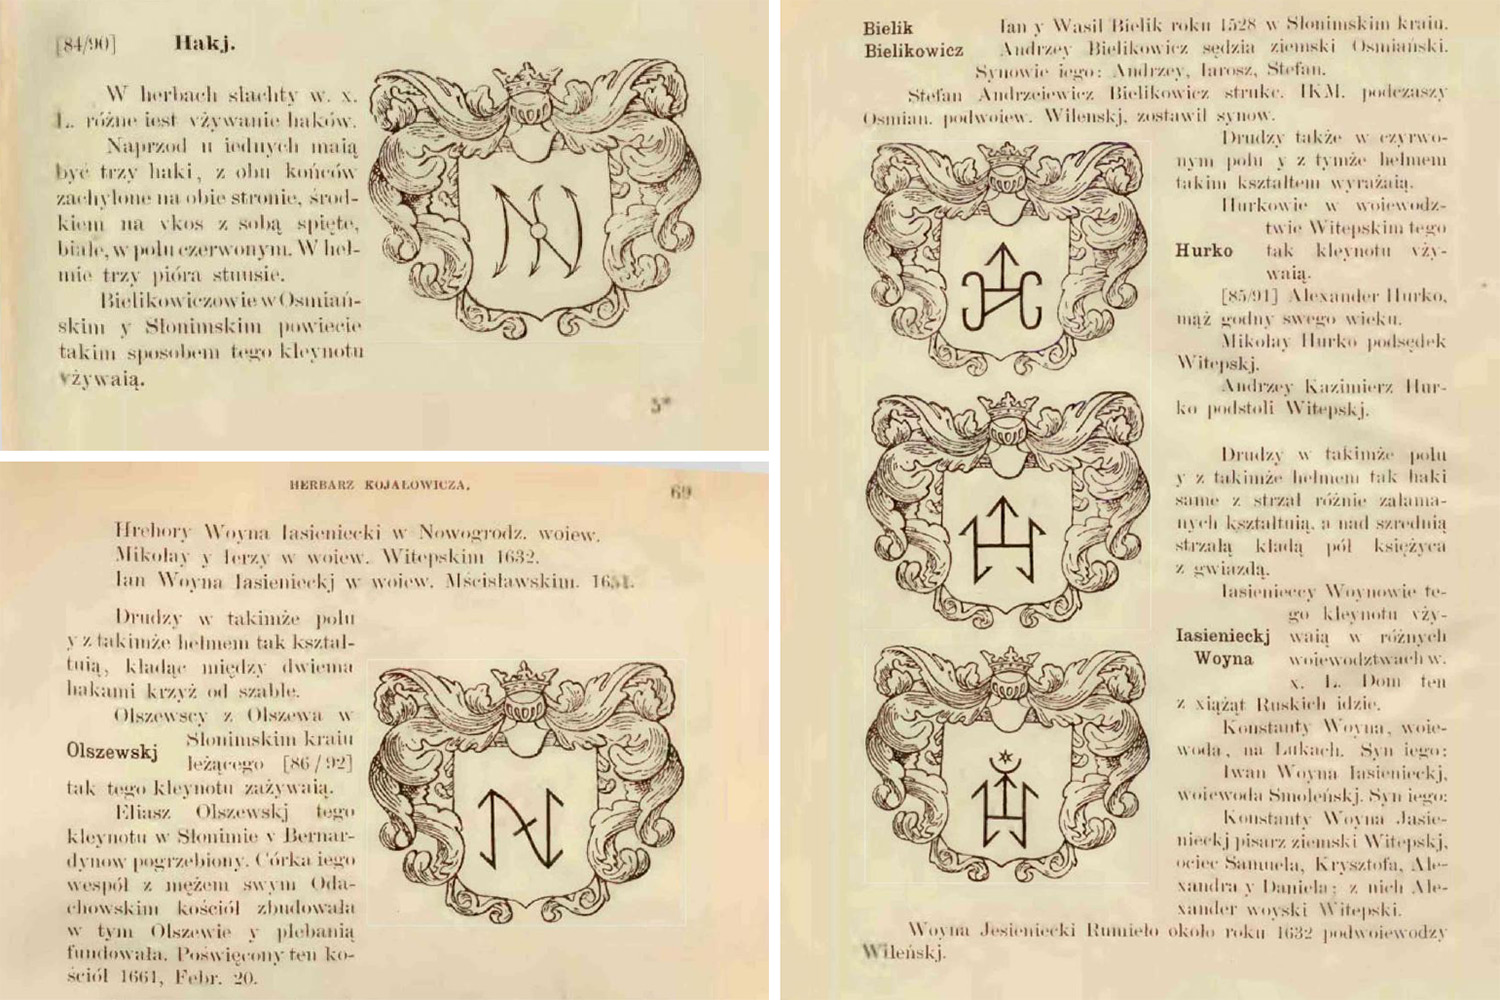 [84/90] Hakj.
W herbach slachty w. x.
L. różne iest vżywanie haków.
Naprzod u iednych maią
być trzy haki, z obu końców
zachylone na obie stronie, środ-
kiem na vkos z sobą spięte,
białe, w polu czerwonym. W heł-
mie trzy pióra strusie.
Bielikowiczowie w Osmiań-
skim y Słonimskim powiecie
takim sposobem tego kleynotu
vżywaią.
5*
HERBARZ KOJAŁOWICZA.
69
Hrehory Woyna Iasieniecki w Nowogrodz. woiew.
Mikołay y Ierzy w woiew. Witepskim 1632.
Ian Woyna Iasienieckj w woiew. Mścisławskim.
Drudzy w takimże polu
y z takimże hełmem tak kształ-
tuią, kładąc między dwiema
hakami krzyż od szable.
Olszewscy z Olszewa w
Olszewskj Słonimskim kraiu
leżącego [86/92]
tak tego kleynotu zażywaią.
Eliasz Olszewskj tego
kleynotu w Słonimie v Bernar-
dynow pogrzebiony. Córka iego
wespół z mężem swym Oda-
chowskim kościół zbudowała
w tym Olszewie y plebanią
fundowała. Poświęcony ten ko-
ściół 1661, Febr. 20.
Bielik Ian y Wasil Bielik roku 1528 w Słonimskim kraiu.
Bielikowicz Andrzey Bielikowicz sędzia ziemski Osmiański.
Synowie iego: Andrzey, Iarosz, Stefan.
Stefan Andrzeiewicz Bielikowicz strukc. IKM. podczaszy
Osmian. podwoiew. Wilenskj, zostawił synow.
Drudzy także w czyrwo-
nym polu y z tymże hełmem
takim kształtem wyrażaią.
Hurkowie w woiewodz-
twie Witepskim tego
Hurko tak kleynotu vży-
waią.
[85/91] Alexander Hurko,
mąż godny swego wieku.
Mikołay Hurko podsędek
Witepskj.
Andrzey Kazimierz Hur-
ko podstoli Witepskj.
Drudzy w takimże polu
y z takimże hełmem tak haki
same z strzał różnie załama-
nych kształtuią, a nad szrednią
strzałą kładą pół księżyca
z gwiazdą.
Iasienieccy Woynowie te-
go kleynotu vży-
Iasienieckj waią w różnych
Woyna woiewodztwach w.
x. L. Dom ten
z xiążąt Ruskich idzie.
Konstanty Woyna, woie-
woda, na Łukach. Syn iego:
Iwan Woyna Iasienieckj,
woiewoda Smoleńskj. Syn iego:
Konstanty Woyna Jasie-
nieckj pisarz ziemski Witepskj,
ociec Samuela, Krysztofa, Ale-
xandra y Daniela; z nich Ale-
xander woyski Witepski.
Woyna Jesieniecki Rumieło około roku 1632 podwoiewodzy
Wileńskj.